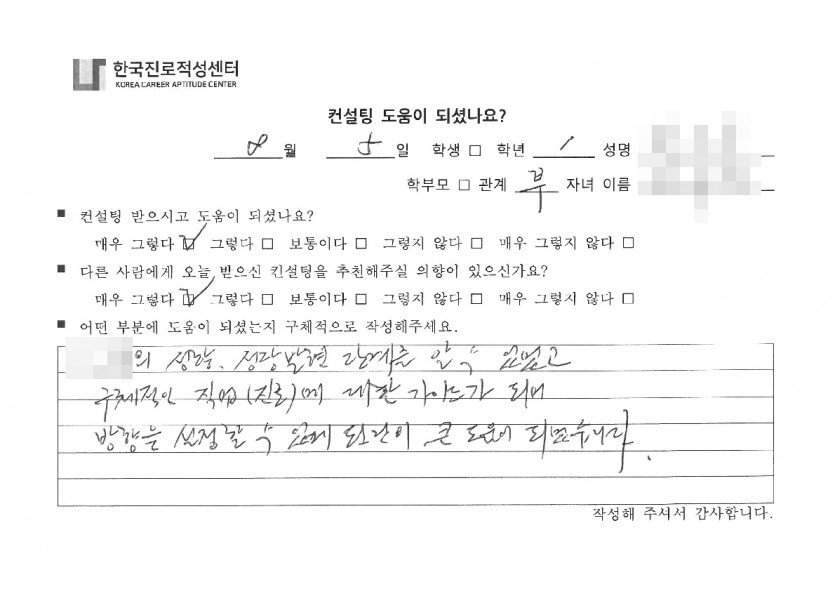 한국진로적성센터
KOREA CAREER APTITUDE CENTER
컨설팅 도움이 되셨나요?
8 월 5 일 학생 □ 학년 1 성명
학부모 □ 관계 부 자녀 이름
■ 컨설팅 받으시고 도움이 되셨나요?
매우 그렇다 ☑ 그렇다 □ 보통이다 □ 그렇지 않다 □ 매우 그렇지 않다 □
■ 다른 사람에게 오늘 받으신 컨설팅을 추천해주실 의향이 있으신가요?
매우 그렇다 ☑ 그렇다 □ 보통이다 □ 그렇지 않다 □ 매우 그렇지 않다 □
■ 어떤 부분에 도움이 되셨는지 구체적으로 작성해주세요.
의 성향, 성장발현 단계를 알 수 있었고
구체적인 직업(진로)에 대한 가이드가 되어
방향을 설정할 수 있게 되 큰 도움이 되었습니다.
작성해 주셔서 감사합니다.